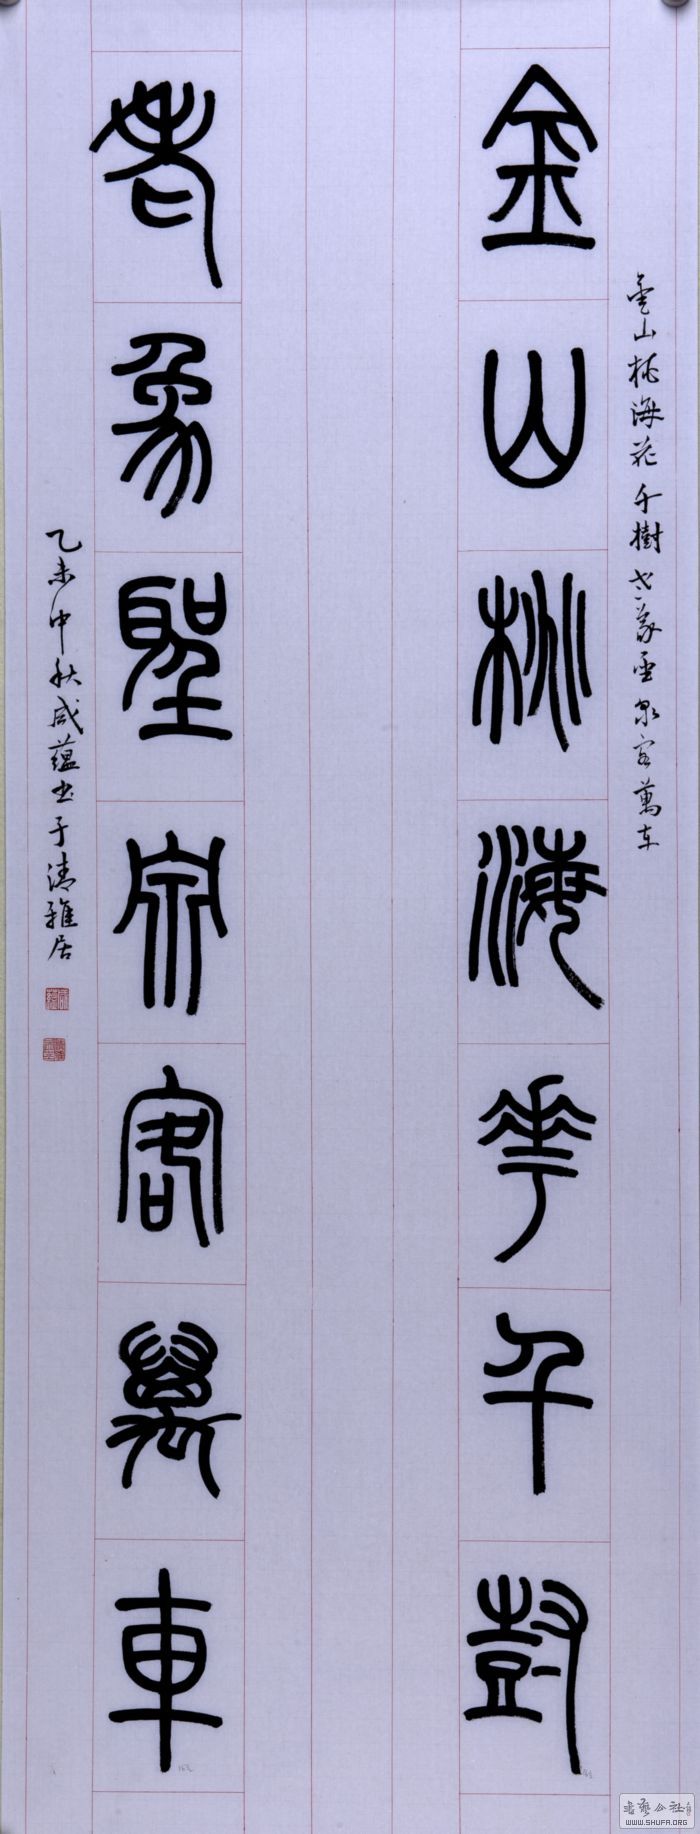 金山桃海花千樹老象聖泉客萬車
金山桃海花千尌
老象聖泉客萬車
乙未中秋咸蕴書于清雅居
書藝公社
WWW.SHUFA.ORG